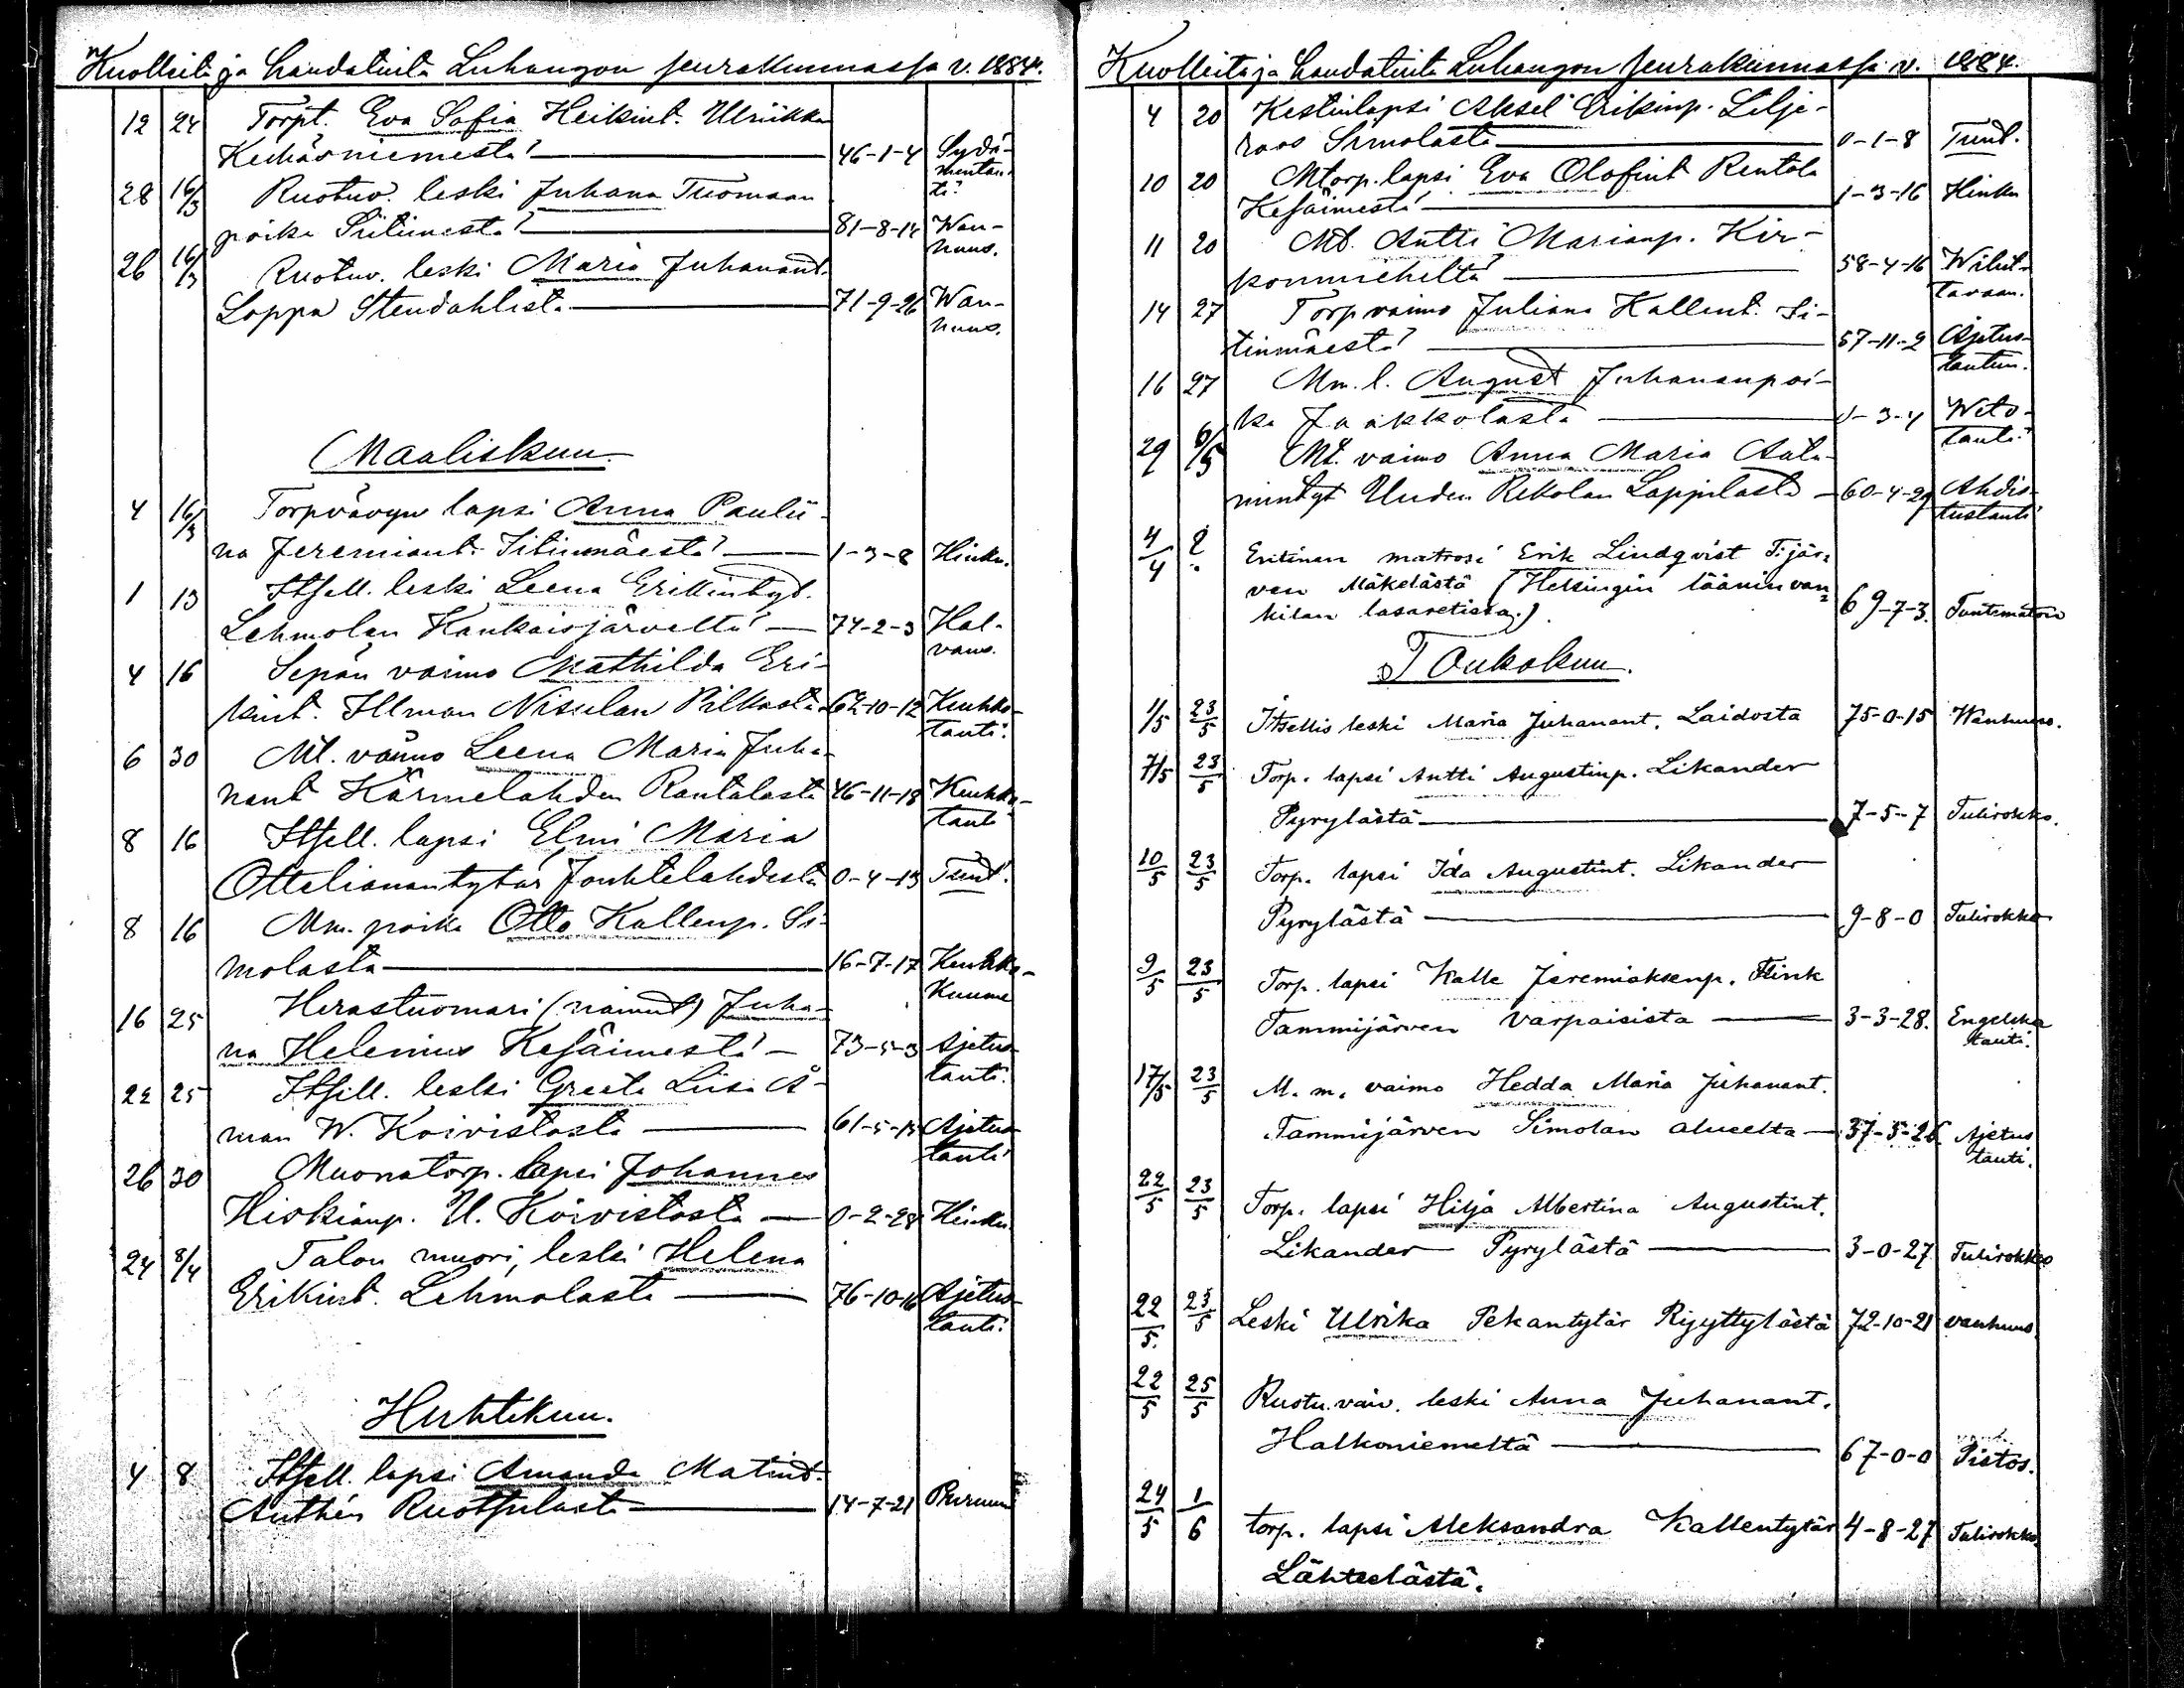 Kuolleita ja haudatuita Luhangon seurakunnassa v. 1884.
12 24 Torpt. Eva Sofia Heikint. Ulriikka
Keihäsniemestä 46-1-4 Sydä-
mentau-
ti
28 16/3 Ruotuv. leski Juhana Tuomaan
poika Siitimestä 81-8-14 Wan-
huus.
26 16/3 Ruotuv. leski Maria Juhanant.
Loppa Stendahlista 71-9-26 Wan-
huus.
Maaliskuu.
4 16/3 Torpvävyn lapsi Anna Pauli-
na Jeremiant. Sitinmäestä 1-3-8 Hinku.
1 13 Itsell. leski Leena Erikintyt.
Lehmolan Kaukaisjärveltä 74-2-3 Hal-
vaus.
4 16 Sepän vaimo Mathilda Eri-
kint. Illman Nisulan Pilkasta 62-10-12 Keuhko-
tauti.
6 30 Mt. vaimo Leena Maria Juha-
nant. Kärmelahden Rantalasta 46-11-18 Keuhko-
tauti
8 16 Itsell. lapsi Elmi Maria
Ottolianantytär Jouhtelahdesta 0-4-13 Tunt.
8 16 Mm. poika Otto Kallenp. Si-
molasta 16-7-17 Keuhko-
Kuume
16 25 Herastuomari (nainut) Juha-
na Helenius Kesäimestä 73-5-3 Ajetus-
tauti.
22 25 Itsell. leski Greeta Liisa Å-
man W. Koivistosta 61-5-13 Ajetus-
tauti
26 30 Muonatorp. lapsi Johannes
Hiskianp. U. Koivistosta 0-2-28 Hinku
24 8/4 Talon muori, leski Helena
Erikint. Lehmolasta 76-10-16 Ajetus-
tauti.
Huhtikuu.
4 8 Itsell. lapsi Amanda Matint.
Anthén Ruotsulasta 14-7-21
Kuolleita ja haudatuita Luhangon seurakunnassa v. 1884.
4 20 Kestinlapsi Aksel Erikinp. Lilje-
roos Simolasta 0-1-8 Tunt.
10 20 Mtorp. lapsi Eva Olofint Rentola
Kesäimestä 1-3-16 Hinku
11 20 Mt. Antti Marianp. Kir-
konmieheltä 58-4-16 Wilut-
tavaan.
14 27 Torp vaimo Juliana Kallent. Si-
tinmäestä 57-11-2 Ajetus-
tautiin.
16 27 Mm. l. August Juhananpoi-
ka Jaakkolasta 0-3-4 Weto-
tauti
29 6/5 Mt. vaimo Anna Maria Aata-
mintyt Uuden Rekolan Loppilasta 60-4-29 Ahdis-
tustauti
4/4 ? Entinen matrosi Erik Lindqvist T:jär-
ven Mäkelästä (Helsingin läänin van-
kilan lasaretissa.) 69-7-3. Tuntematoin
Toukokuu.
1/5 23/5 Itsellis leski Maria Juhanant. Laidosta 75-0-15 Wanhuus.
7/5 23/5 Torp. lapsi Antti Augustinp. Likander
Pyrylästä 7-5-7 Tulirokko.
10/5 23/5 Torp. lapsi Ida Augustint. Likander
Pyrylästä 9-8-0 Tulirokko
9/5 23/5 Torp. lapsi Kalle Jeremiaksenp. Flink
Tammijärven Varpaisista 3-3-28. Engelska
tauti.
17/5 23/5 M. m. vaimo Hedda Maria Juhanant.
Tammijärven Simolan alueelta 37-5-26 Ajetus
tauti.
22/5 23/5 Torp. lapsi Hilja Albertina Augustint.
Likander Pyrylästä 3-0-27 Tulirokko
22/5. 23/5 Leski Ulrika Pekantytär Rijyttylästä 72-10-21 vanhuus
22/5 25/5 Ruotu. vaiv. leski Anna Juhanant.
Halkoniemeltä 67-0-0 Pistos.
24/5 1/6 torp. lapsi Aleksandra Kallentytär 4-8-27 Tulirokko
Lähteelästä.